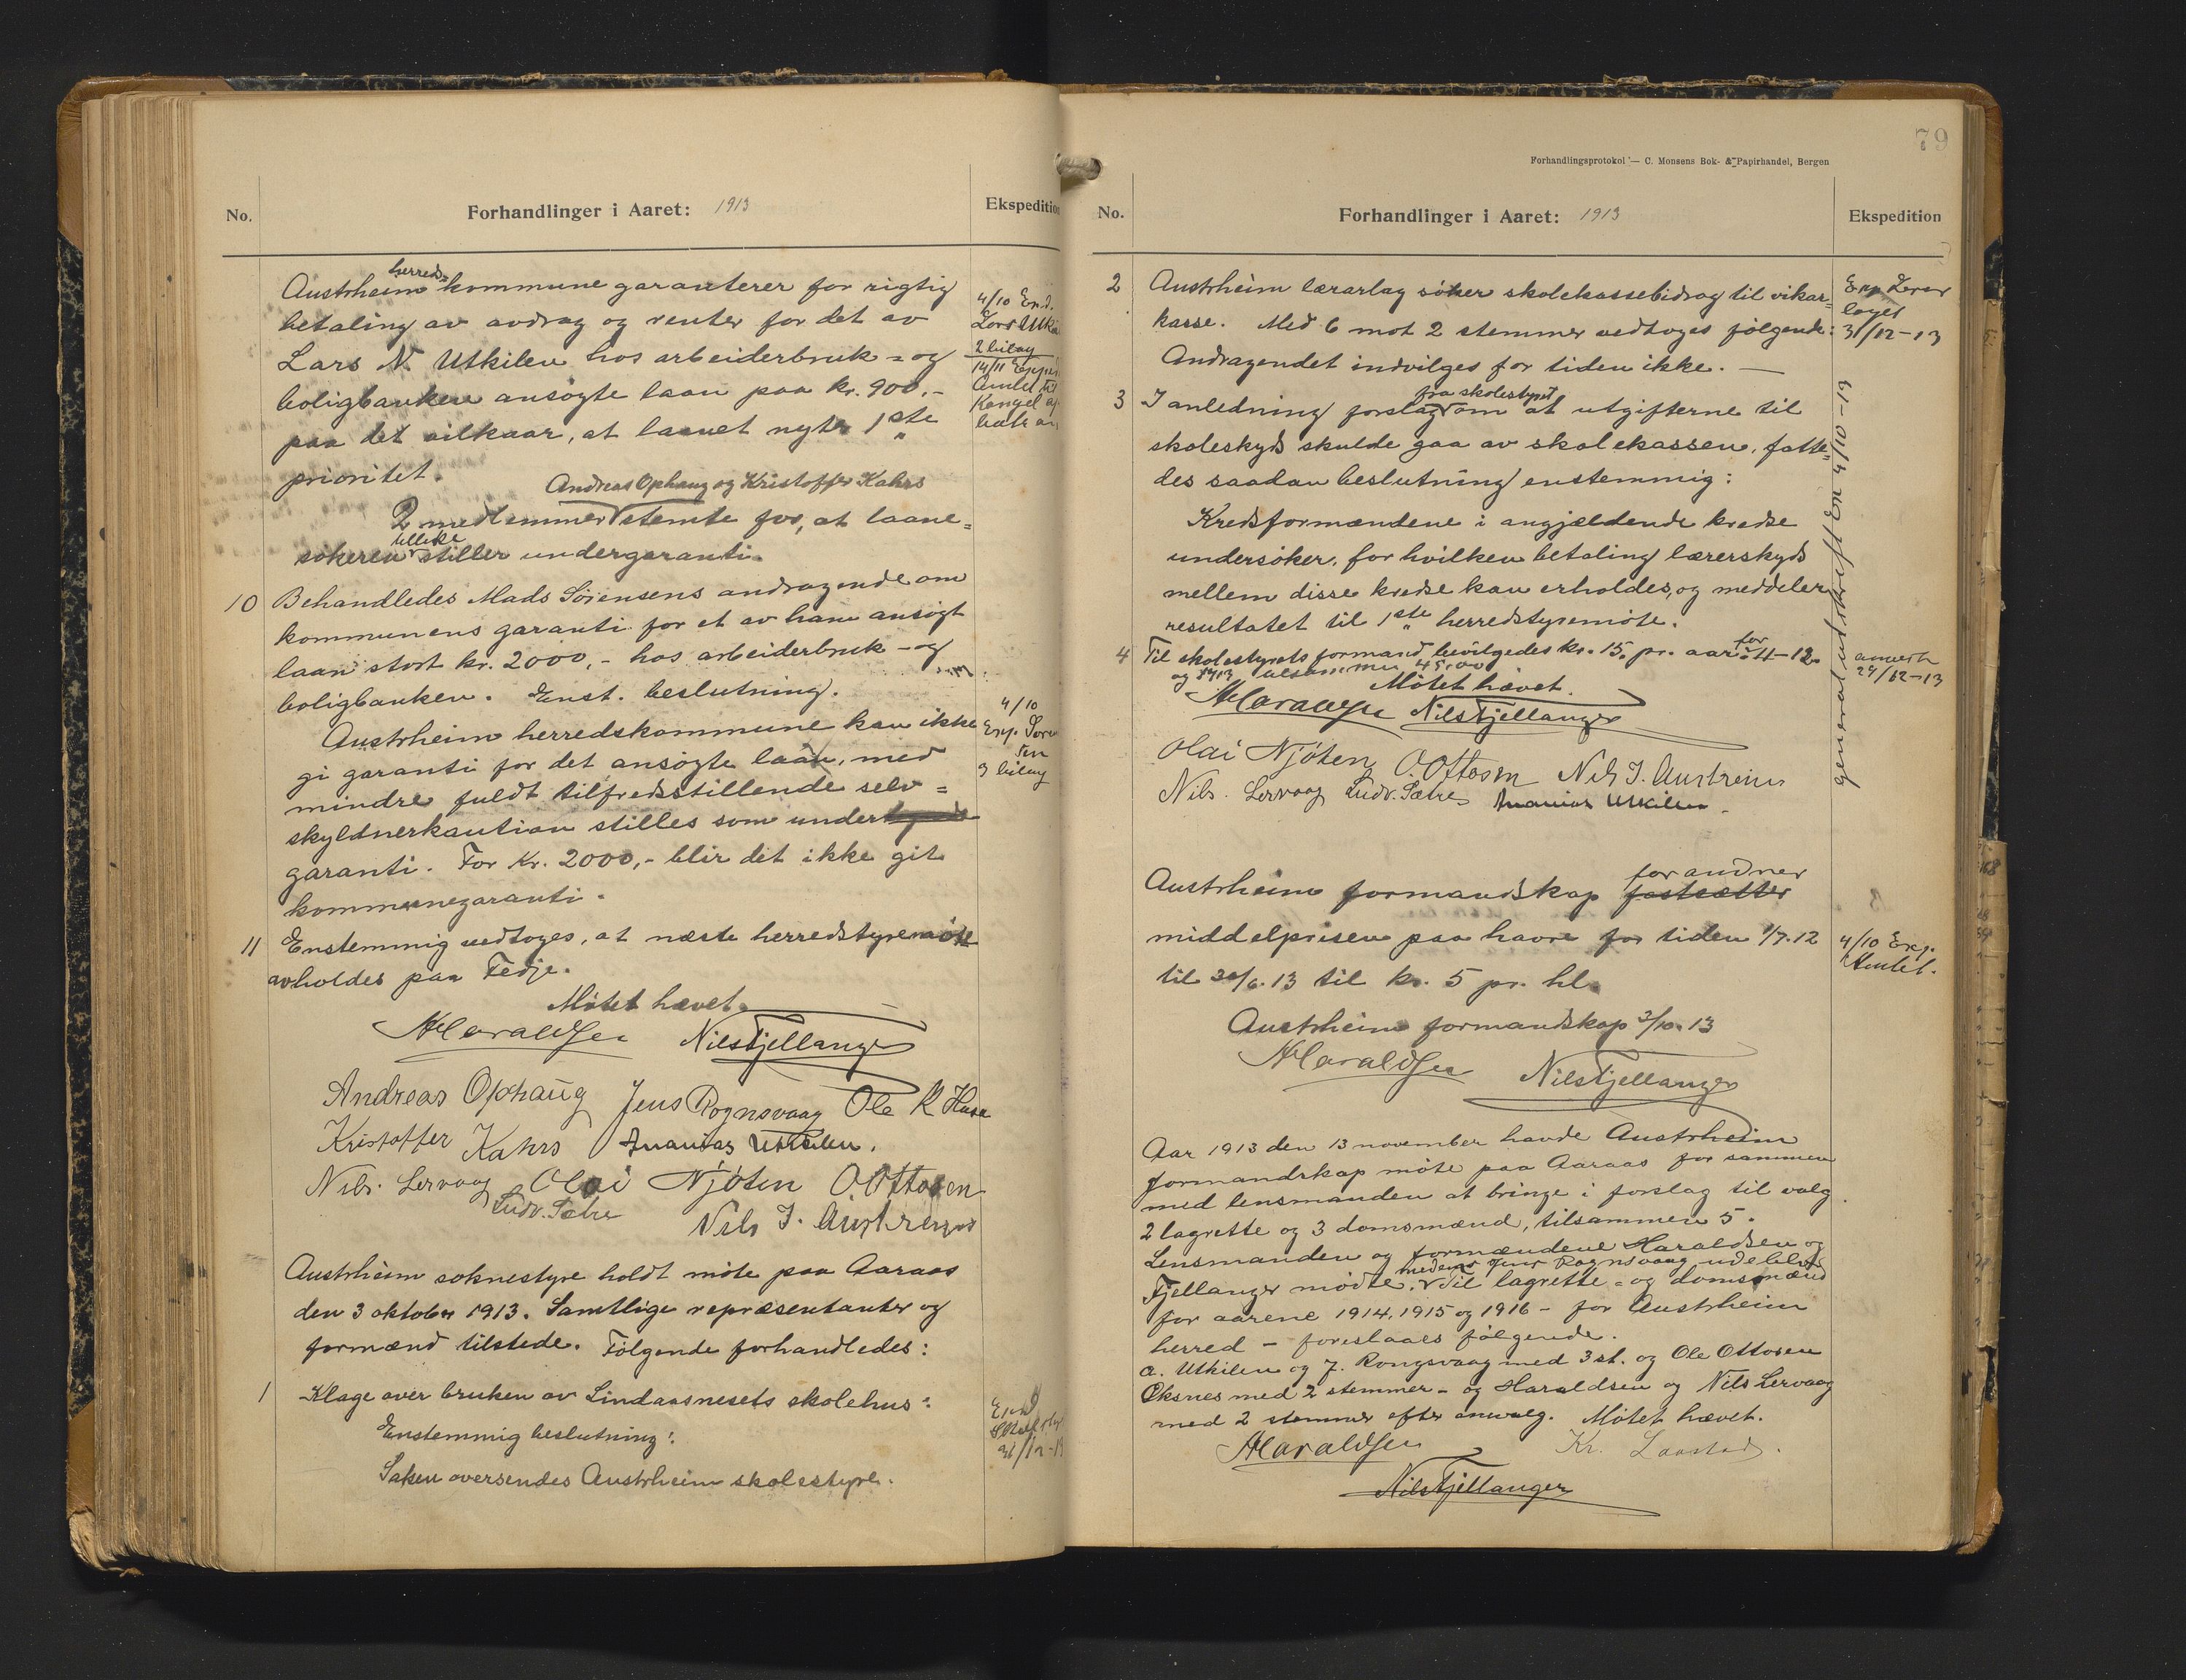 No.
Forhandlinger i Aaret: 1913
Ekspedition
Austrheim herreds-kommune garanterer for rigtig
betaling av avdrag og renter for det av
Lars N. Utkilen hos arbeiderbruk- og
boligbanken ansøgte laan paa kr. 900,-
paa det vilkaar, at laanet nyter 1ste
prioritet.
Andreas Ophaug og Kristoffer Kahrs
2 medlemmer stemte for, at laane-
søkeren tillike stiller undergaranti.
10 Behandledes Mads Sørensens andragende om
kommunens garanti for et av ham ansøgt
laan stort kr. 2000,- hos arbeiderbruk- og
boligbanken. Enst. beslutning.
Austrheim herredskommune kan ikke
gi garanti for det ansøgte laan, med
mindre fuldt tilfredsstillende selv-
skyldnerkaution stilles som under
garanti. For Kr. 2000,- blir det ikke git
kommunegaranti.
4/10
Exp. Søren
sen
3 bilag
11 Enstemmig vedtoges, at næste herredstyremøte
avholdes paa Fedje.
Møtet hævet.
AHaraldsen Nils Fjellanger
Andreas Ophaug Jens Rognsvaag Ole R
Kristoffer Kahrs Ananias Utkilen.
Nils. Lervaag Olai Njøten O. Ottosen
Ludv. Sætre Nils J. Austreim
Austrheim soknestyre holdt møte paa Aaraas
den 3 oktober 1913. Samtlige repræsentanter og
formænd tilstede. Følgende forhandledes:
1 Klage over bruken av Lindaasnesets skolehus:
Enstemmig beslutning:
Saken oversendes Austrheim skolestyre.
79
Forhandlingsprotokol — C. Monsens Bok- & Papirhandel, Bergen
No.
Forhandlinger i Aaret: 1913
Ekspedition
2 Austrheim lærarlag søker skolekassebidrag til vikar-
kasse. Med 6 mot 2 stemmer vedtoges følgende:
Andragendet indvilges for tiden ikke. —
Exp Lærer
laget
31/12-13
3 I anledning forslag fra skolestyret om at utgifterne til
skoleskyds skulde gaa av skolekassen, fatte-
des saadan beslutning enstemmig:
Kredsformændene i angjældende kredse
undersøker, for hvilken betaling lærerskyds
mellem disse kredse kan erholdes, og meddeler
resultatet til 1ste herredstyremøte.
general utskrift En 4/10-13
4 Til skolestyrets formand bevilgedes kr. 15. pr. aar for 11-12
og 1913 tilsammen 45.00
Møtet hævet.
anvist
29/12-13
AHaraldsen Nils Fjellanger
Olai Njøten O. Ottosen Nils J. Austreim
Nils. Lervaag Ludv. Sætre Ananias Utkilen.
Austrheim formandskap fastsætter forandrer
middelprisen paa havre for tiden 1/7.12
til 30/6.13 til kr. 5 pr. hl.
4/10 Exp.
Amtet.
Austrheim formandskap 3/10.13
AHaraldsen Nils Fjellanger
Aar 1913 den 13 november havde Austrheim
formandskap møte paa Aaraas for sammen
med lensmanden at bringe i forslag til valg
2 lagrette og 3 domsmænd, tilsammen 5.
Lensmanden og formændene Haraldsen og
Fjellanger mødte, medens Jens Rognsvaag udeblev. Til lagrette- og domsmænd
for aarene 1914, 1915 og 1916 - for Austrheim
herred - foreslaaes følgende.
A. Utkilen og J. Rongsvaag med 3 st. og Ole Ottosen
Øksnes med 2 stemmer - og Haraldsen og Nils Lervaag
med 2 stemmer efter omvalg. Møtet hævet.
AHaraldsen Kr. Laastad.
Nils Fjellanger